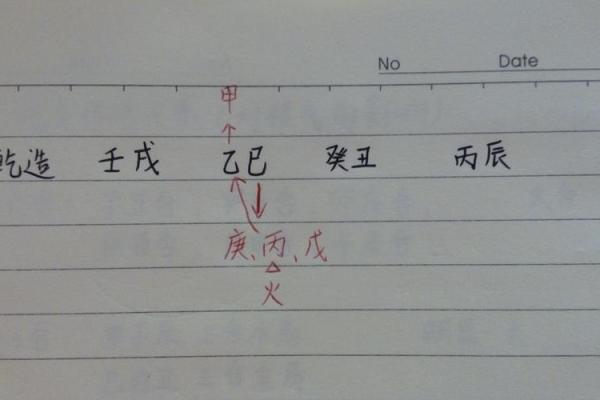 No Date
甲
乾造 壬戌 乙巳 癸丑 丙辰
庚、丙、戊
火